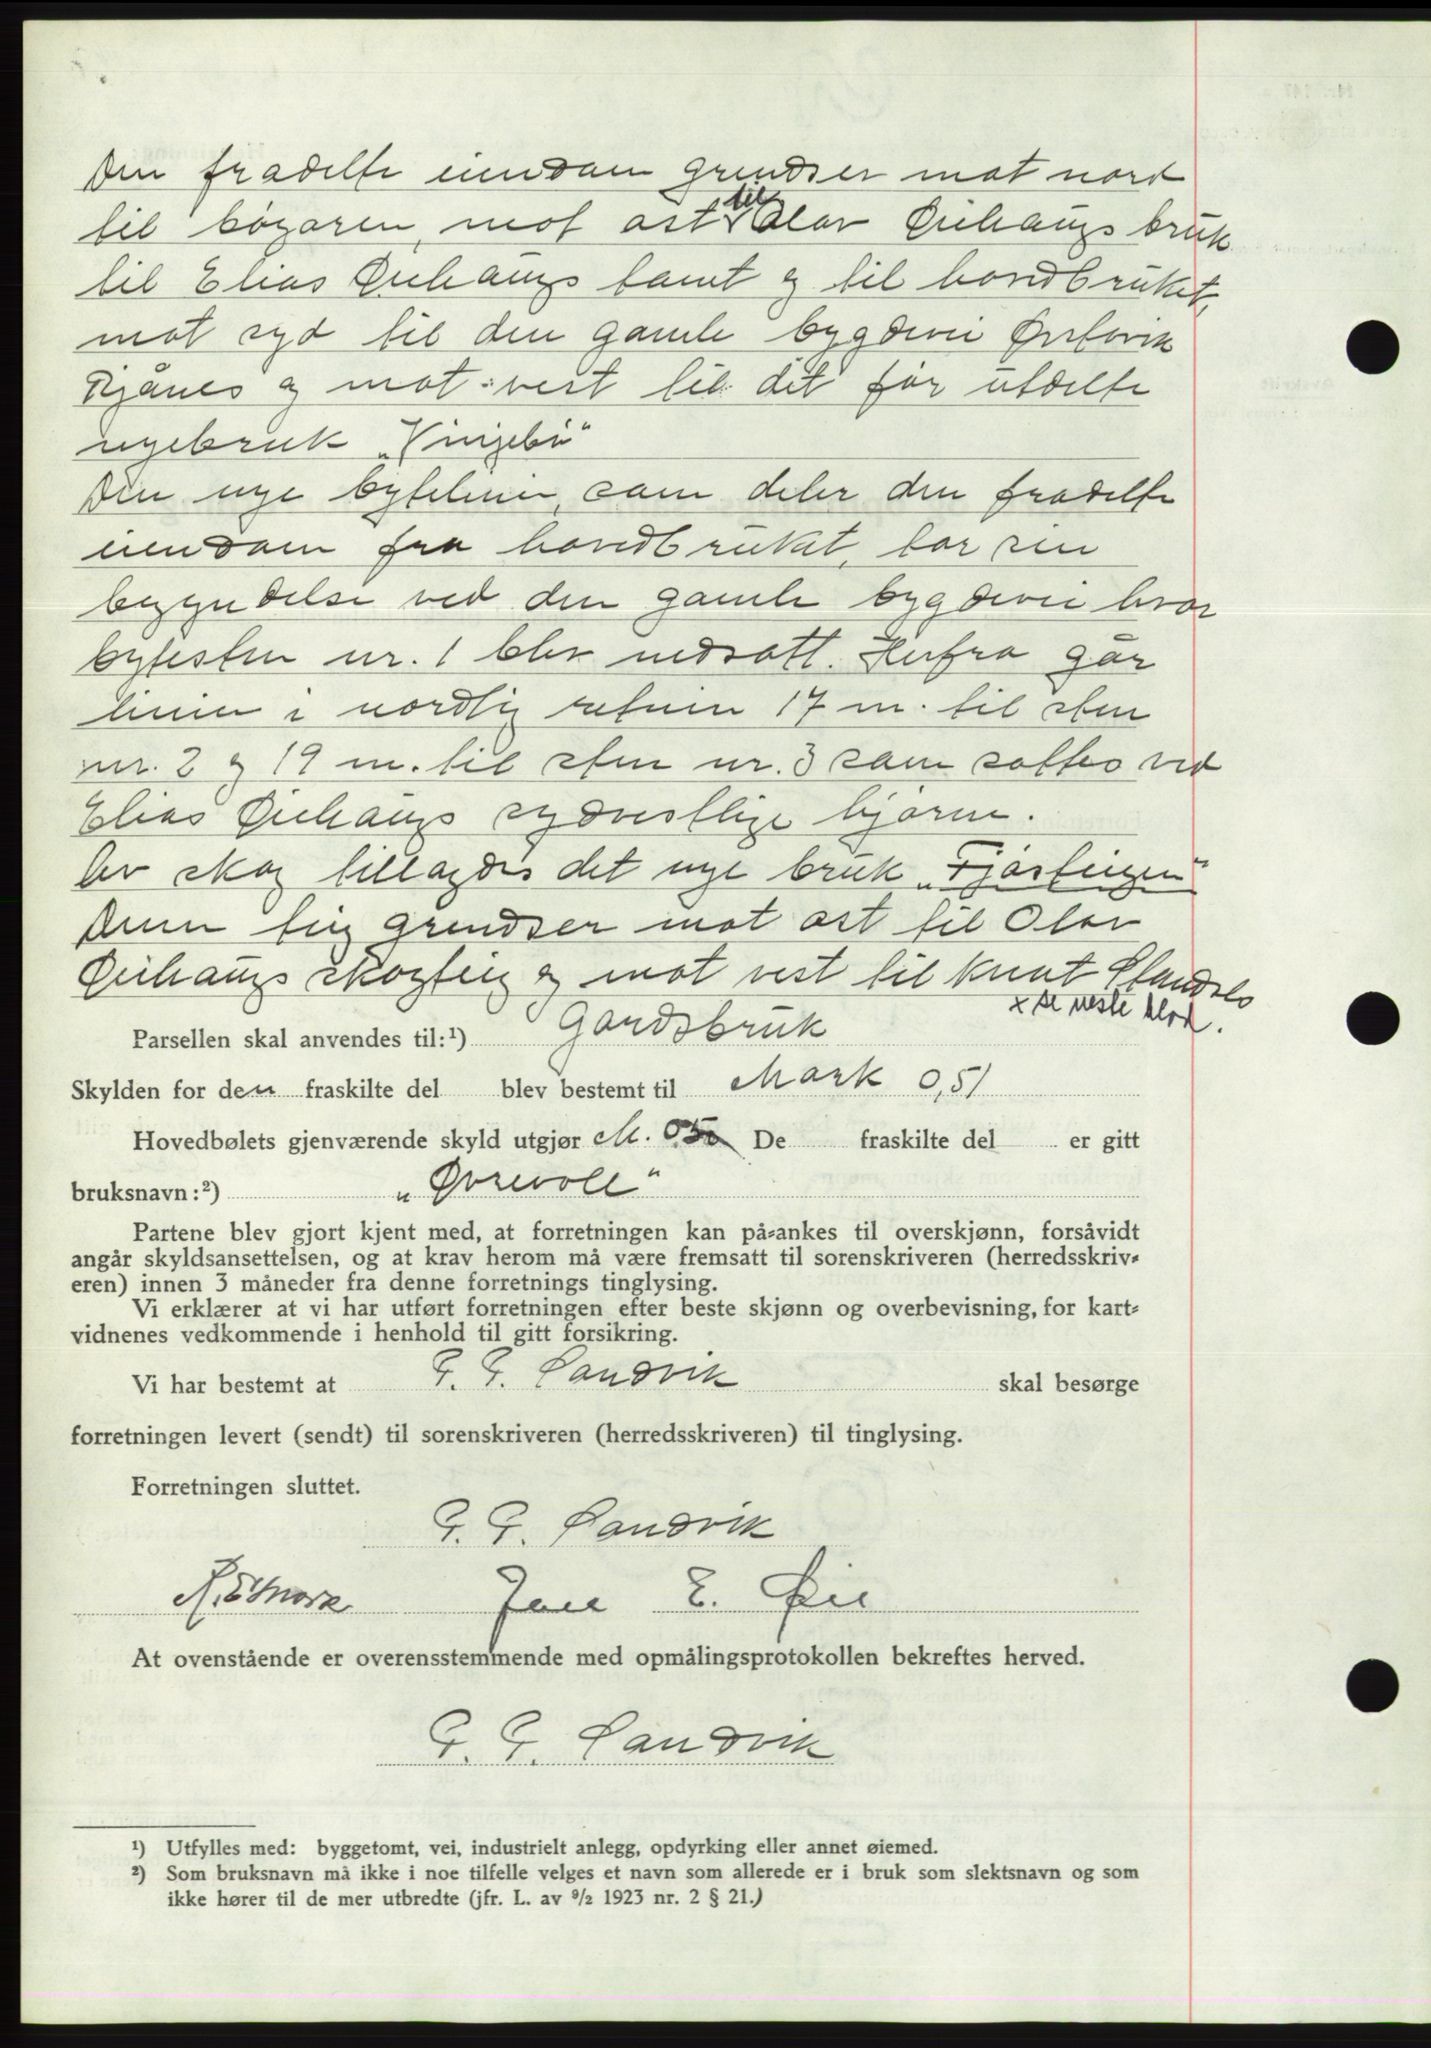 Den fradelte eiendom grendser mot nord
til bøgaren, mot ost til Olav Øiehaugs bruk
til Elias Øiehaugs tomt og til hovedbruket,
mot syd til den gamle bygdevei Ørstavik
og mot vest til det før utdelte
nyebruk "Vingebø"
Den nye bytelinie, som deler den fradelte
eiendom fra hovedbruket, tar sin
begyndelse ved den gamle bygdevei hvor
bytesten nr. 1 blev nedsatt. Herfra går
linien i nordlig retnin 17 m. til sten
nr. 2 og 19 m. til sten nr. 3 som sattes ved
Elias Øiehaugs sydvestlige hjørne.
Av skog tillagdes det nye bruk "Fjøsteigen"
Denne teig grendser mot ost til Olav
Øiehaugs skogteig og mot vest til Knut Standals
x se neste blad.
Parsellen skal anvendes til:¹) Gardsbruk
Skylden for den fraskilte del blev bestemt til Mark 0,51
Hovedbølets gjenværende skyld utgjør M. 0.50 De fraskilte del er gitt
bruksnavn:²) "Øvrevoll"
Partene blev gjort kjent med, at forretningen kan på-ankes til overskjønn, forsåvidt
angår skyldsansettelsen, og at krav herom må være fremsatt til sorenskriveren (herredsskriv-
eren) innen 3 måneder fra denne forretnings tinglysing.
Vi erklærer at vi har utført forretningen efter beste skjønn og overbevisning, for kart-
vidnenes vedkommende i henhold til gitt forsikring.
Vi har bestemt at G. G. Sandvik skal besørge
forretningen levert (sendt) til sorenskriveren (herredsskriveren) til tinglysing.
Forretningen sluttet.
G. G. Sandvik
E. Øie
At ovenstående er overensstemmende med opmålingsprotokollen bekreftes herved.
G. G. Sandvik
¹) Utfylles med: byggetomt, vei, industrielt anlegg, opdyrking eller annet øiemed.
²) Som bruksnavn må ikke i noe tilfelle velges et navn som allerede er i bruk som slektsnavn og som
ikke hører til de mer utbredte (jfr. L. av 9/2 1923 nr. 2 § 21.)